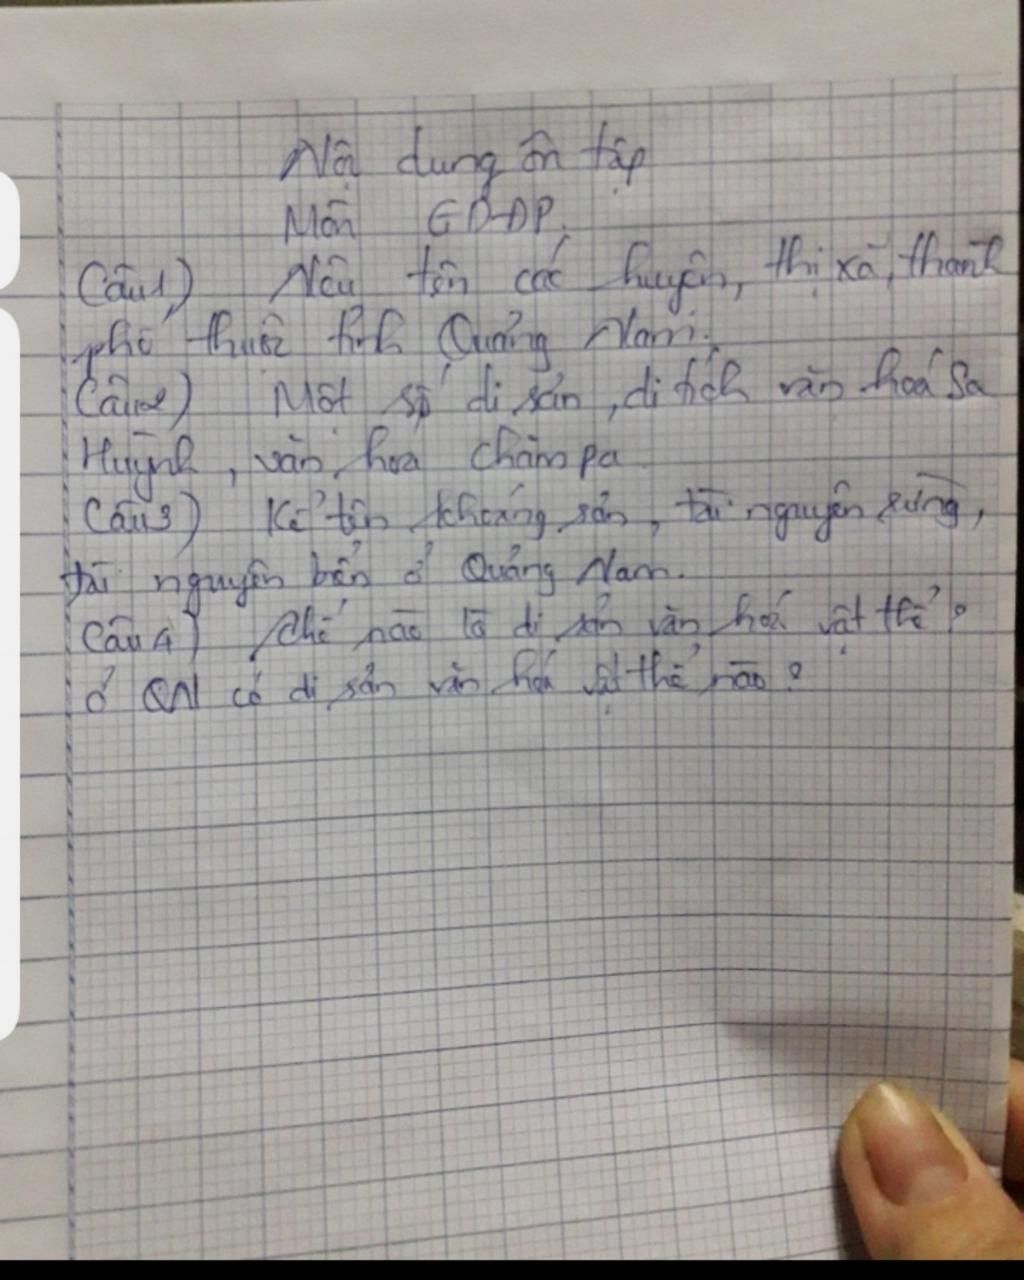 Nội dung ôn tập
Môn GDĐP.
Câu1) Nêu tên các huyện, thị xã, thành
phố thuộc tỉnh Quảng Nam.
Câu2) Một số di sản, di tích văn hoá Sa
Huỳnh, văn hoá chămpa
Câu3) Kể tên khoáng sản, tài nguyên rừng,
tài nguyên biển ở Quảng Nam.
Câu 4) thế nào là di sản văn hoá vật thể?
ở QN có di sản văn hoá vật thể nào?